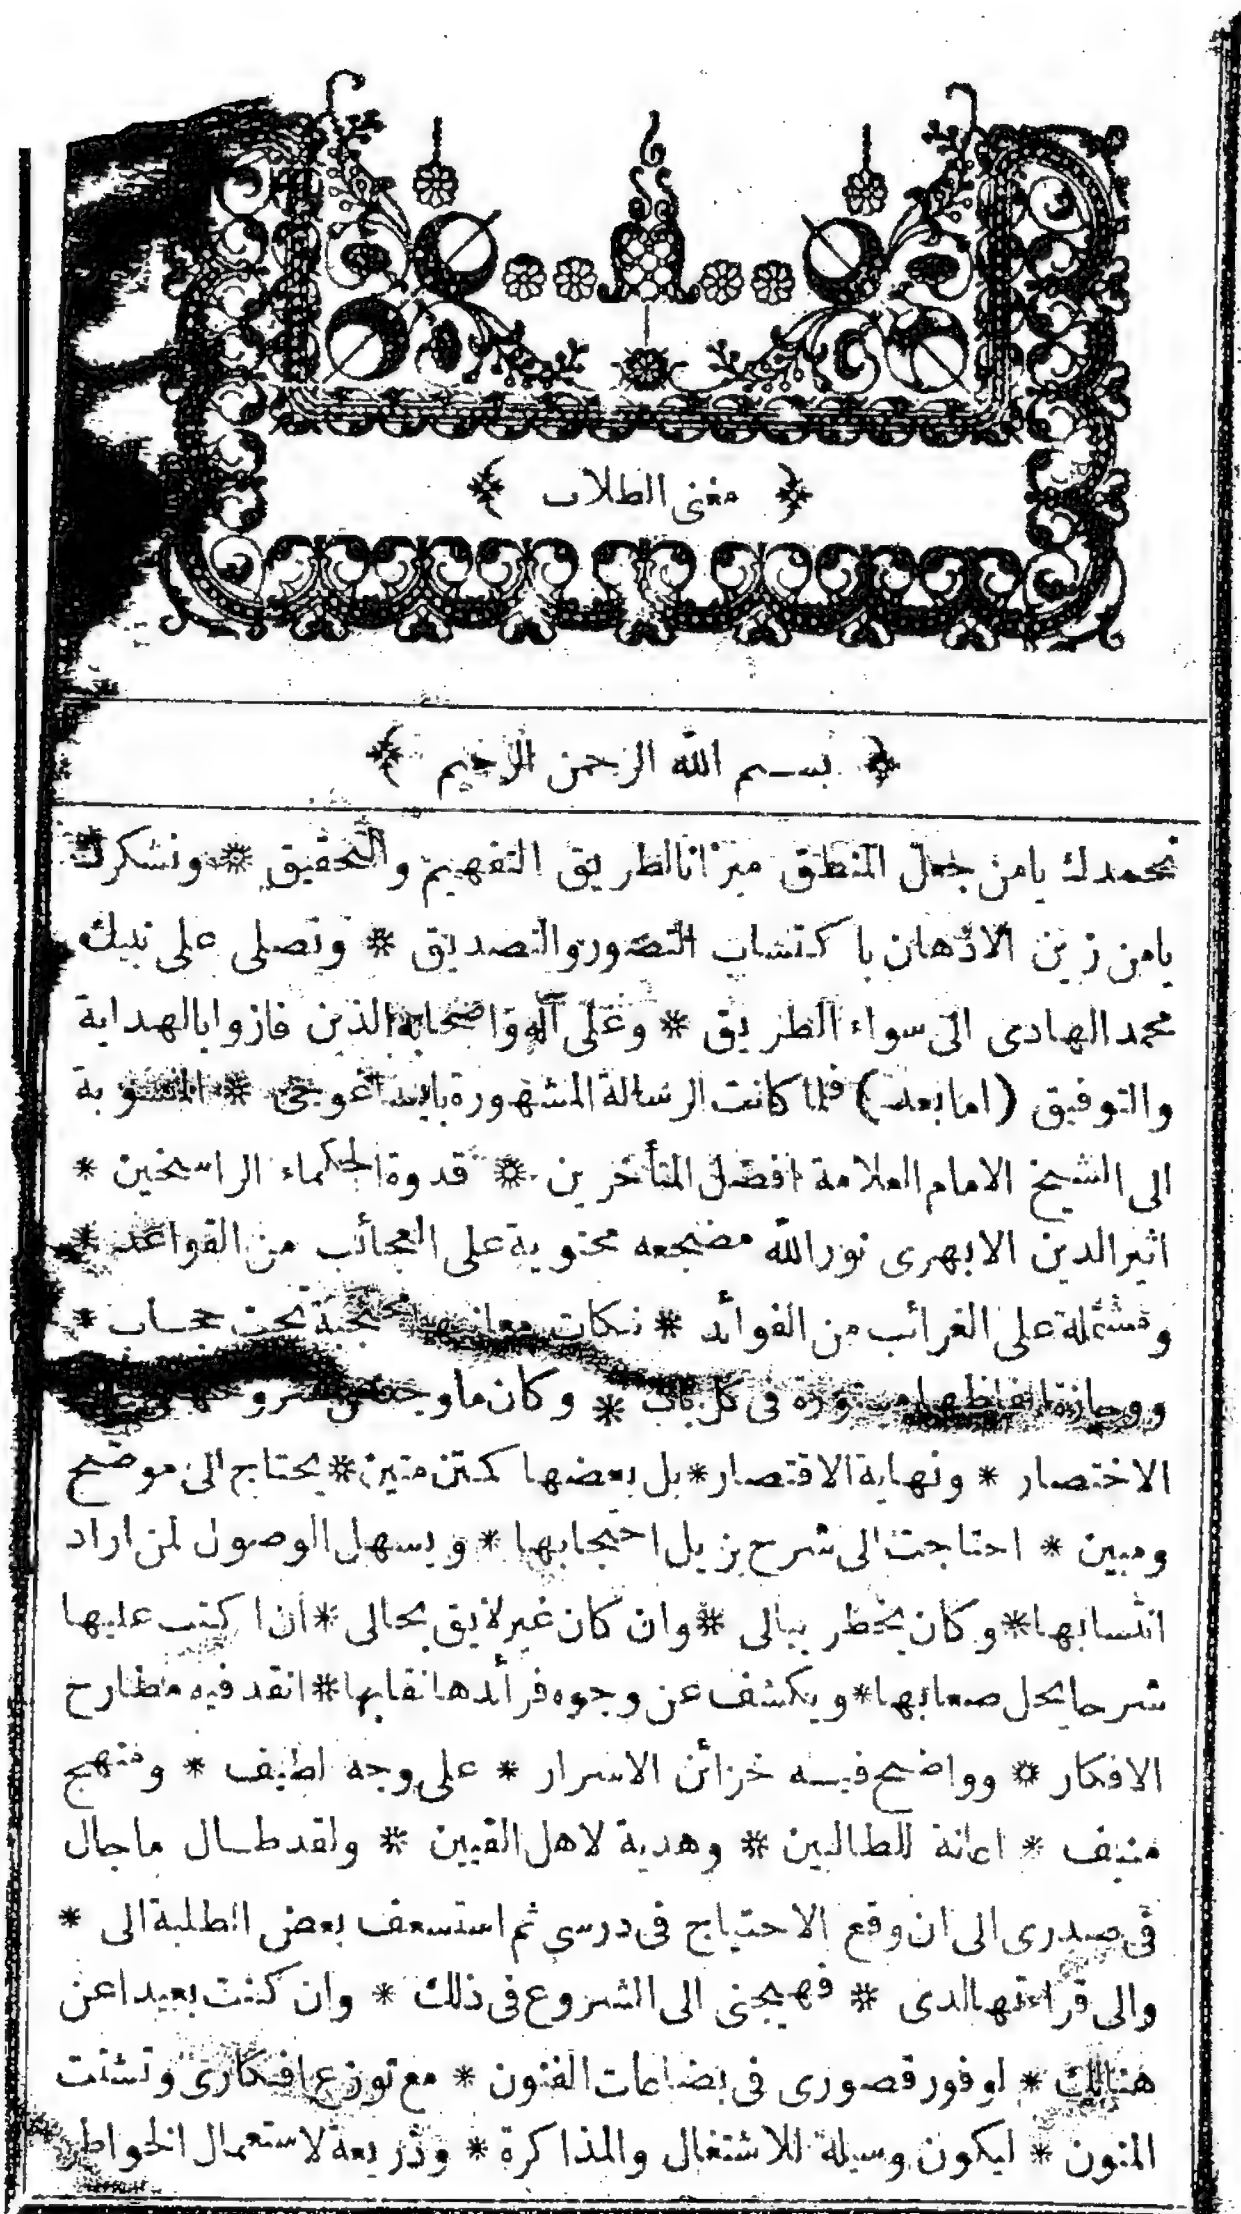 ﴿ مغنى الطلاب ﴾
﴿ بسم الله الرحمن الرحيم ﴾
نحمدك يامن جعل المنطق ميزانا لطريق التفهيم والتحقيق * ونشكرك
يامن زين الاذهان باكتشاب التصور والتصديق * ونصلى على نبيك
محمد الهادى الى سواء الطريق * وعلى آله واصحابه الذين فازوا بالهداية
والتوفيق (اما بعد) فلما كانت الرسالة المشهورة بايساغوجى * المنسوبة
الى الشيخ الامام العلامة افضل المتأخرين * قدوة الحكماء الراسخين *
اثير الدين الابهرى نور الله مضجعه محتوية على العجائب من القواعد *
ومشتملة على الغرائب من الفوائد * نكات معانيها محتجبة تحت حجاب *
ووجازة الفاظها مستورة فى كل باب * وكان ما وجد من شروحها فى
الاختصار * ونهاية الاقتصار * بل بعضها كمتن متين * يحتاج الى موضح
ومبين * احتاجت الى شرح يزيل احتجابها * ويسهل الوصول لمن اراد
انتسابها * وكان يخطر ببالى * وان كان غير لايق بحالى * ان اكتب عليها
شرحا يحل صعابها * ويكشف عن وجوه فرائدها نقابها * انقد فيه مطارح
الافكار * وواضح فيه خزائن الاسرار * على وجه لطيف * ومنهج
منيف * اعانة للطالبين * وهدية لاهل القيين * ولقد طال ماجال
فى صدرى الى ان وقع الاحتياج فى درسى ثم استسعف بعض الطلبة الى *
والى قراءتها لدى * فهيجنى الى الشروع فى ذلك * وان كنت بعيدا عن
هنالك * لوفور قصورى فى بضاعات الفنون * مع توزع افكارى وتشتت
المنون * ليكون وسيلة للاشتغال والمذاكرة * وذريعة لاستعمال الخواطر